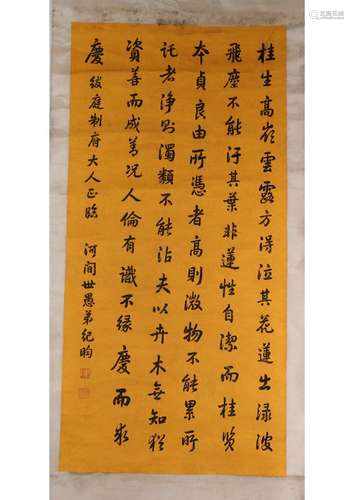 桂生高嶺雲露方得泫其花蓮出淥波
飛塵不能汙其葉非蓮性自潔而桂質
本貞良由所憑者高則微物不能累所
託者淨則濁類不能沾夫以卉木無知猶
資善而成善況人倫有識不緣慶而求
慶 紱庭制府大人正臨 河间世愚弟紀昀